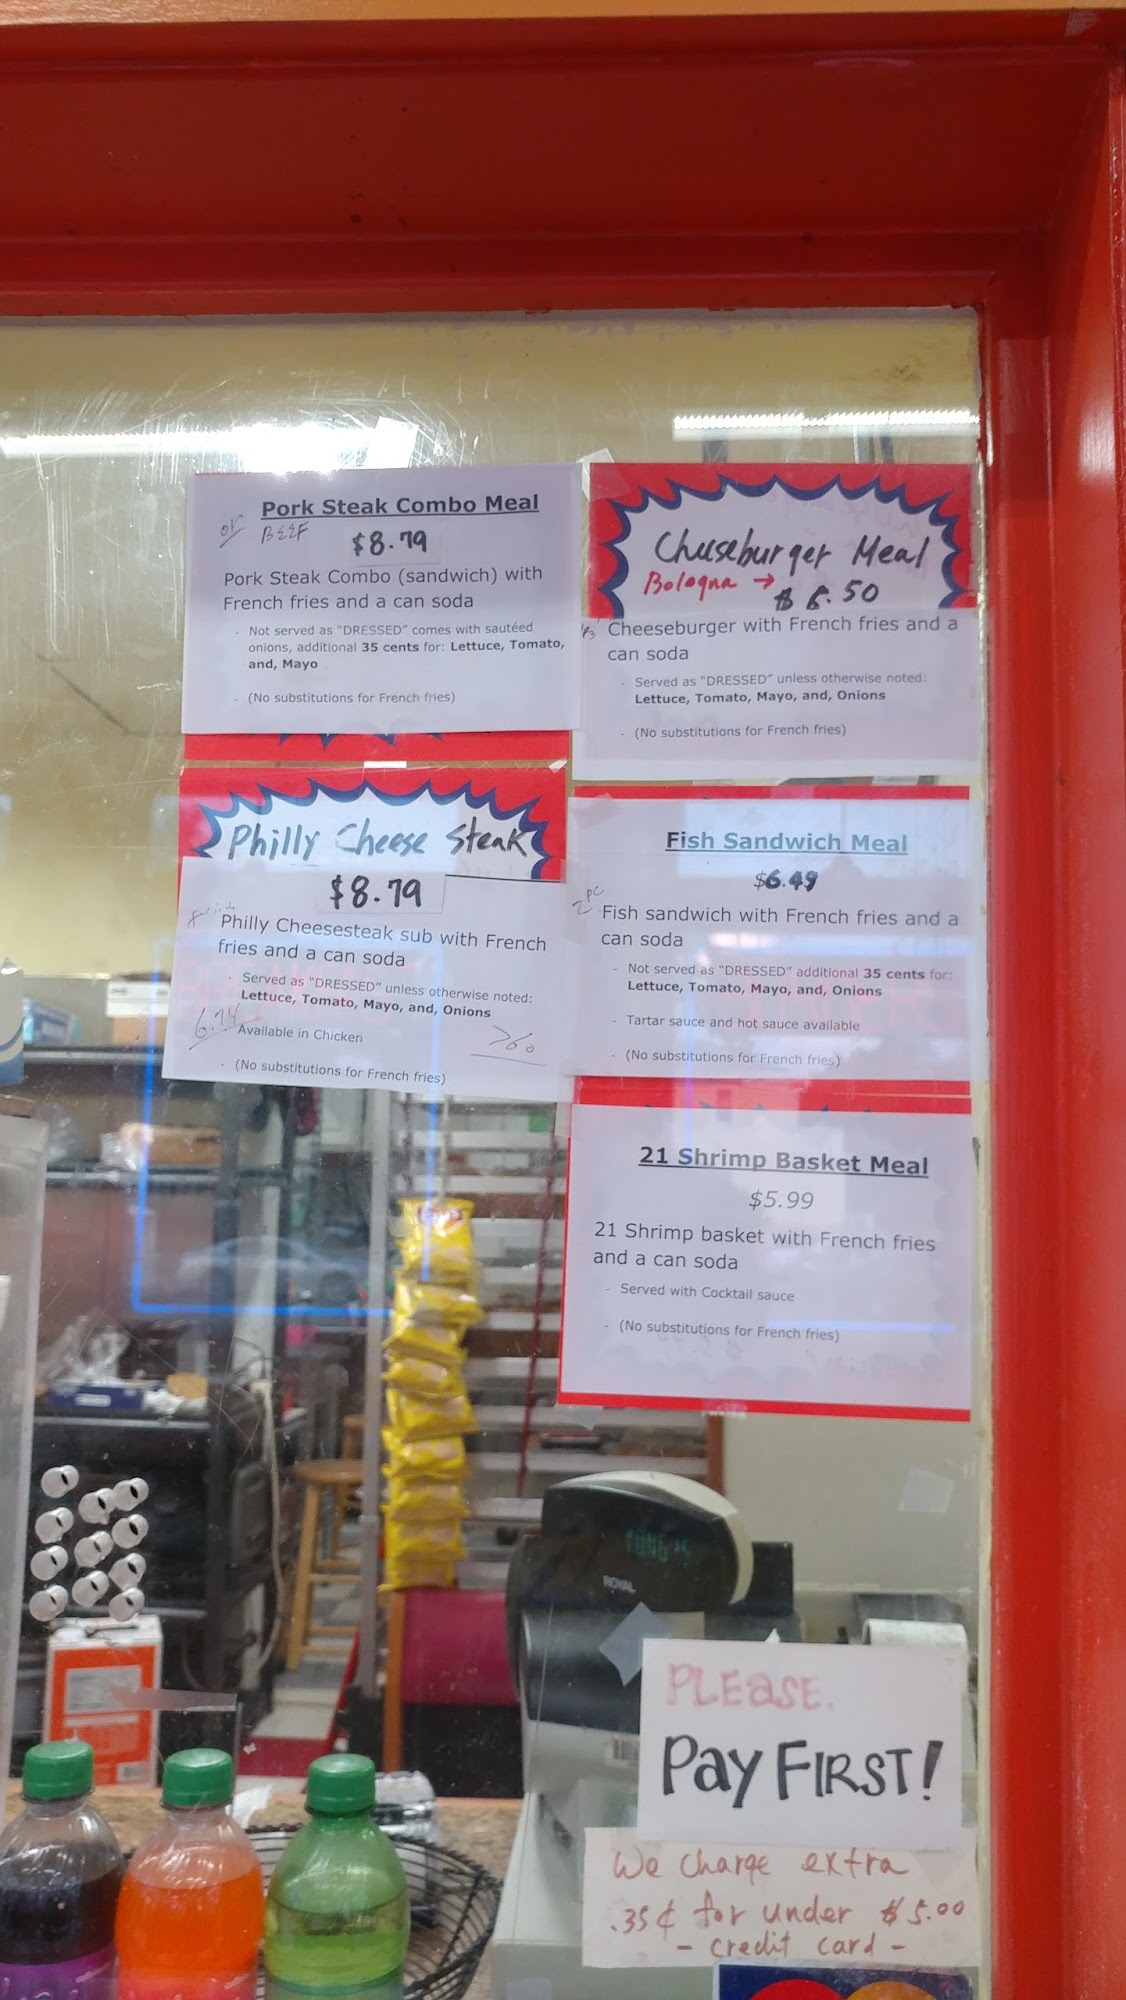 Pork Steak Combo Meal
or BEEF
$8.79
Pork Steak Combo (sandwich) with
French fries and a can soda
- Not served as "DRESSED" comes with sautéed
onions, additional 35 cents for: Lettuce, Tomato,
and, Mayo
- (No substitutions for French fries)
Cheeseburger Meal
Bologna →
.50
Cheeseburger with French fries and a
can soda
- Served as "DRESSED" unless otherwise noted:
Lettuce, Tomato, Mayo, and, Onions
- (No substitutions for French fries)
Philly Cheese Steak
$8.79
Philly Cheesesteak sub with French
fries and a can soda
- Served as "DRESSED" unless otherwise noted:
Lettuce, Tomato, Mayo, and, Onions
- Available in Chicken
- (No substitutions for French fries)
Fish Sandwich Meal
$6.49
2 pc
Fish sandwich with French fries and a
can soda
- Not served as "DRESSED" additional 35 cents for:
Lettuce, Tomato, Mayo, and, Onions
- Tartar sauce and hot sauce available
- (No substitutions for French fries)
21 Shrimp Basket Meal
$5.99
21 Shrimp basket with French fries
and a can soda
- Served with Cocktail sauce
- (No substitutions for French fries)
ROYAL
PLEASE.
PAY FIRST!
We charge extra
.35¢ for under $5.00
- credit card -